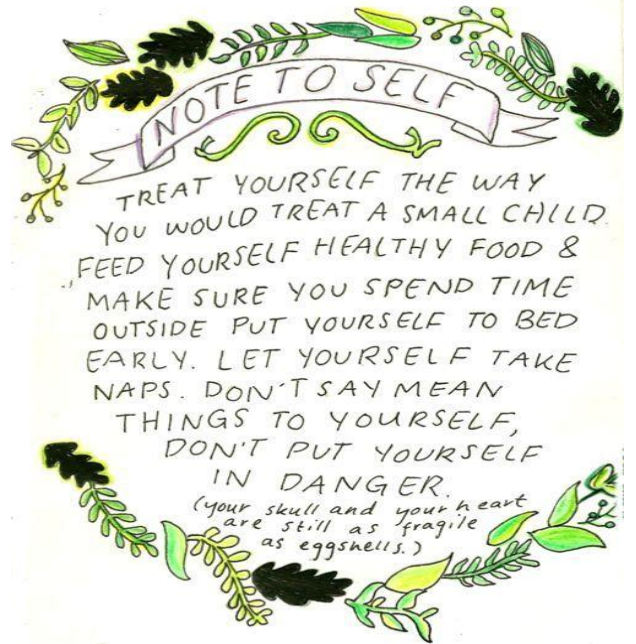 NOTE TO SELF
TREAT YOURSELF THE WAY
YOU WOULD TREAT A SMALL CHILD
FEED YOURSELF HEALTHY FOOD &
MAKE SURE YOU SPEND TIME
OUTSIDE PUT YOURSELF TO BED
EARLY. LET YOURSELF TAKE
NAPS. DON'T SAY MEAN
THINGS TO YOURSELF,
DON'T PUT YOURSELF
IN DANGER.
(your skull and your heart
are still as fragile
as eggshells.)